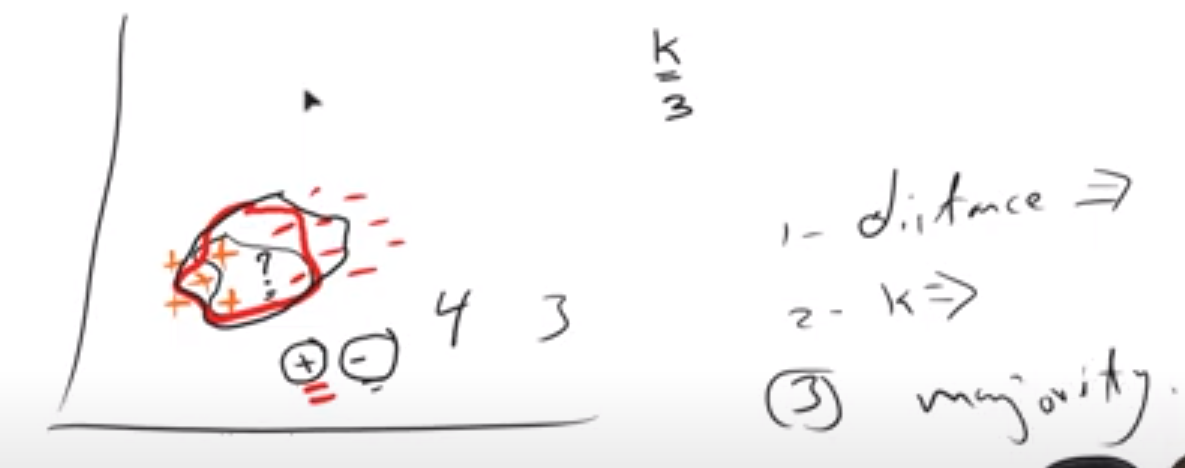 k
=
3
1- distance ⇒
2- k ⇒
?
4 3
+ -
(3) majority.